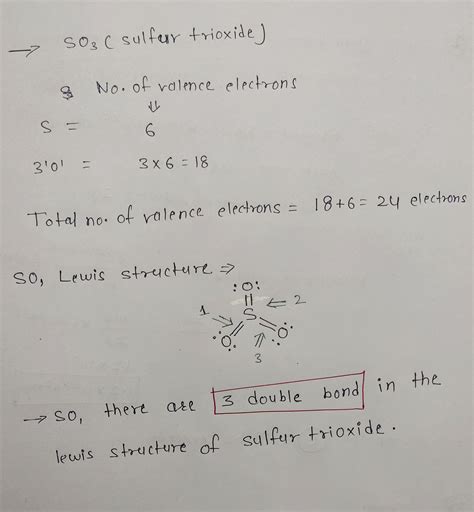 → SO3 ( sulfur trioxide)
No. of valence electrons
⇓
S = 6
3'O' = 3 × 6 = 18
Total no. of valence electrons = 18+6= 24 electrons
SO, Lewis structure ⇒
:O:
1 || ⇐ 2
S
:O: :O:
3
→ SO, there are 3 double bond in the
lewis structure of sulfur trioxide.